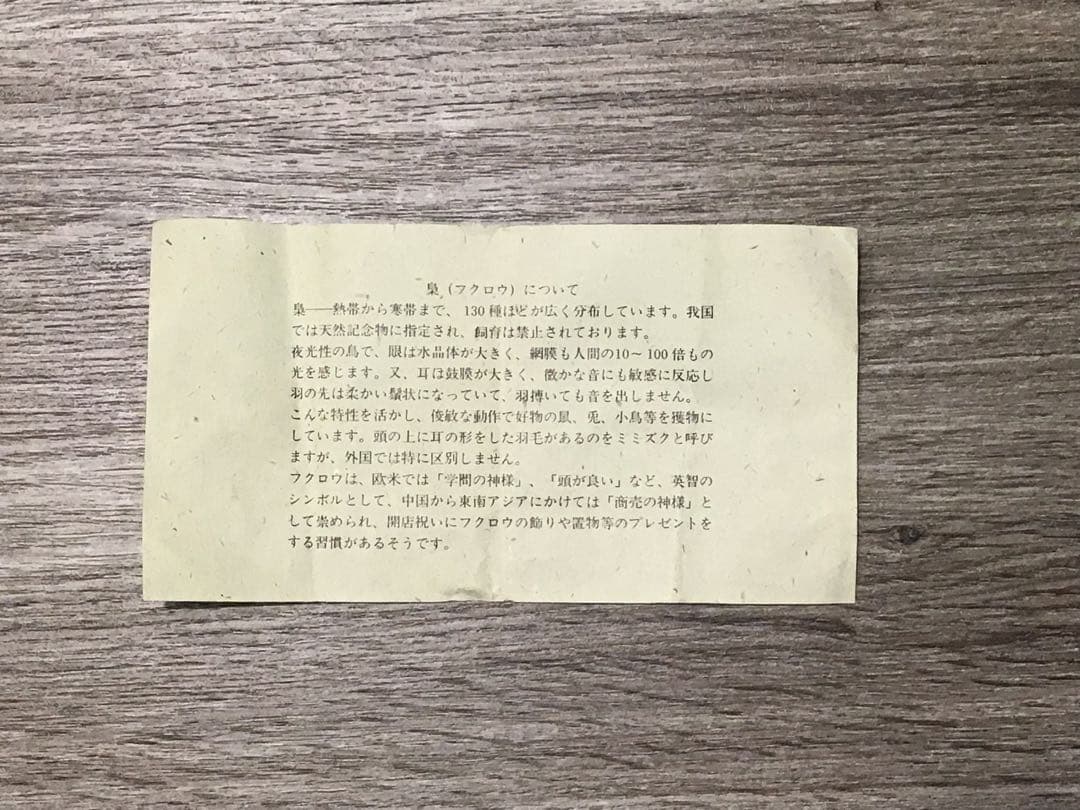 梟（フクロウ）について
梟──熱帯から寒帯まで、130種ほどが広く分布しています。我国
では天然記念物に指定され、飼育は禁止されております。
夜光性の鳥で、眼は水晶体が大きく、網膜も人間の10～100倍もの
光を感じます。又、耳は鼓膜が大きく、微かな音にも敏感に反応し
羽の先は柔かい鬚状になっていて、羽搏いても音を出しません。
こんな特性を活かし、俊敏な動作で好物の鼠、兎、小鳥等を獲物に
しています。頭の上に耳の形をした羽毛があるのをミミズクと呼び
ますが、外国では特に区別しません。
フクロウは、欧米では「学問の神様」、「頭が良い」など、英智の
シンボルとして、中国から東南アジアにかけては「商売の神様」と
して崇められ、開店祝いにフクロウの飾りや置物等のプレゼントを
する習慣があるそうです。